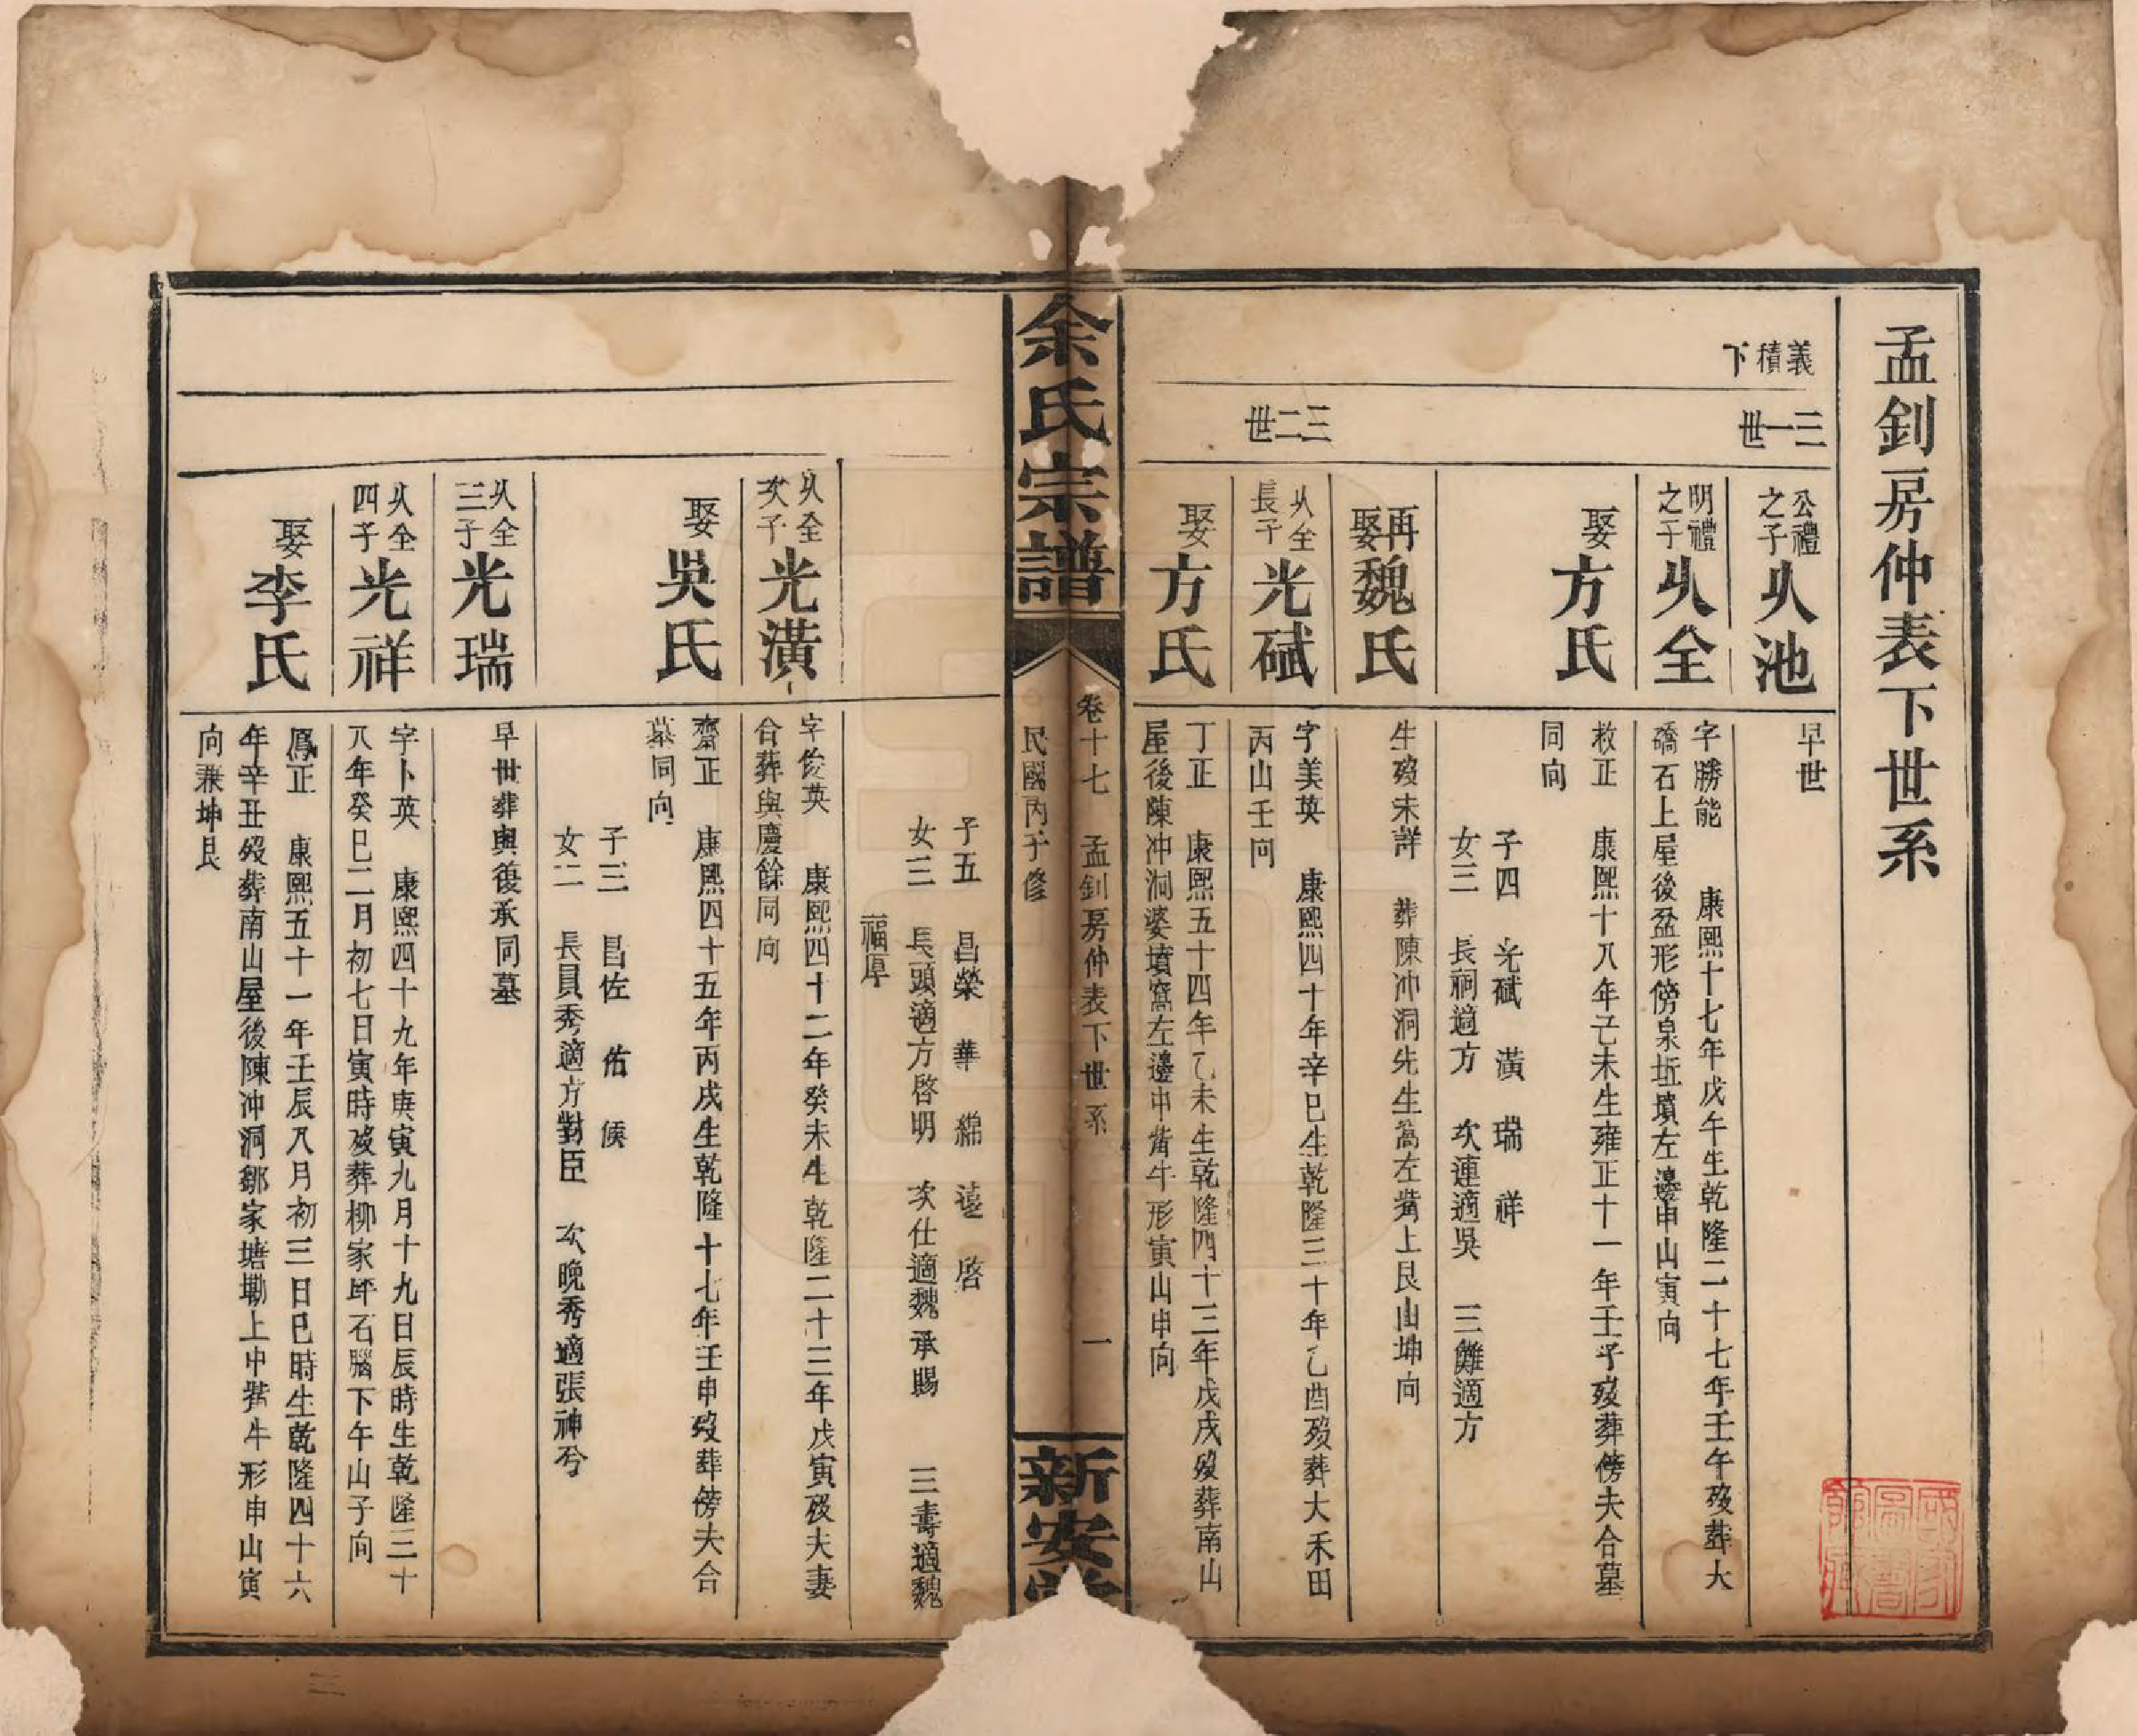 孟釗房仲表下世系
義積下
三一世
公禮之子
乆池
早世
明禮之子
乆全
字勝能 康熙十七年戊午生乾隆二十七年壬午歿葬大
礄石上屋後盆形傍泉坵墳左邊申山寅向
娶方氏
救正 康熙十八年己未生雍正十一年壬子歿葬傍夫合墓
同向
子四 光碔 潢 瑞 祥
女三 長祠適方 次連適吳 三難適方
再娶魏氏
生歿未詳 葬陳冲洞先生窩左嘴上艮山坤向
三二世
乆全長子
光碔
字美英 康熙四十年辛巳生乾隆三十年乙酉歿葬大禾田
丙山壬向
娶方氏
丁正 康熙五十四年乙未生乾隆四十三年戊戌歿葬南山
屋後陳冲洞婆墳窩左邊中嘴牛形寅山申向
余氏宗譜
卷十七 孟釗房仲表下世系 一
民國丙子修
新安
子五 昌榮 華 綿 遠 啓
女三 長頭適方啓明 次仕適魏承賜 三壽適魏
福厚
乆全次子
光潢
字俊英 康熙四十二年癸未生乾隆二十三年戊寅歿夫妻
合葬與慶餘同向
娶吳氏
齋正 康熙四十五年丙戌生乾隆十七年壬申歿葬傍夫合
墓同向
子三 昌佐 佑 候
女二 長貝秀適方對臣 次晚秀適張神兮
乆全三子
光瑞
早世葬與復承同墓
乆全四子
光祥
字卜英 康熙四十九年庚寅九月十九日辰時生乾隆三十
八年癸巳二月初七日寅時歿葬柳家坪石腦下午山子向
娶李氏
鳳正 康熙五十一年壬辰八月初三日巳時生乾隆四十六
年辛丑歿葬南山屋後陳冲洞鄒家塘墈上中嘴牛形申山寅
向兼坤艮
國家圖書館藏